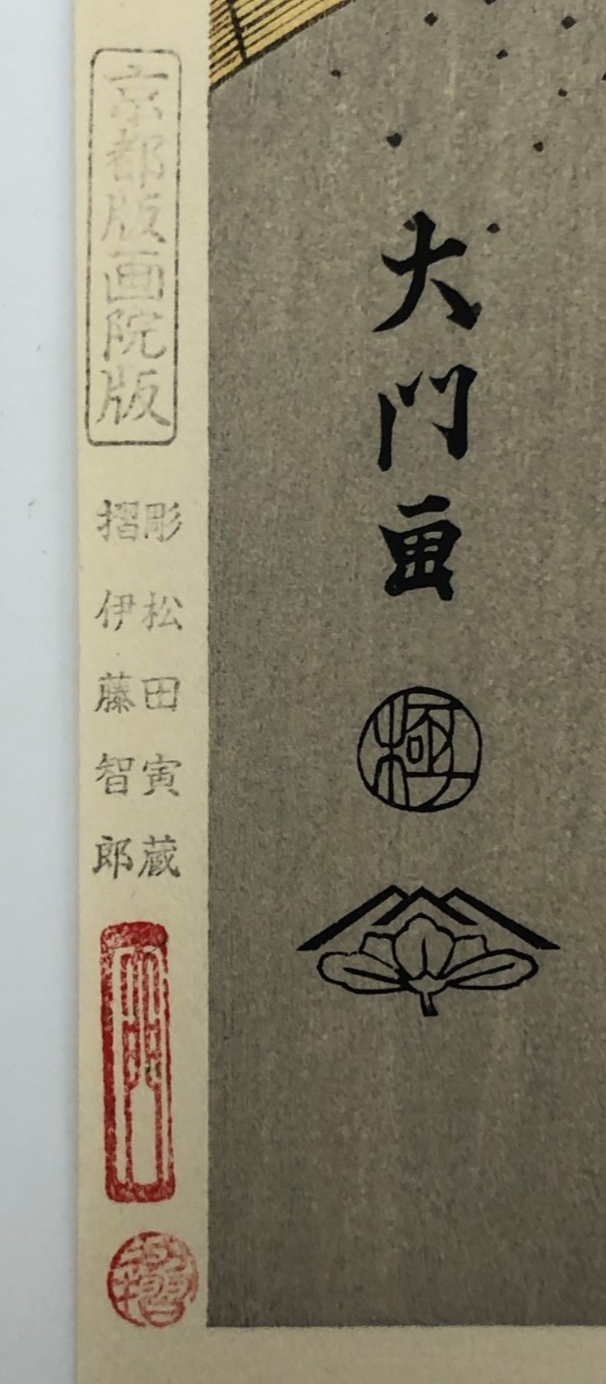 大門画
極
京都版画院版
彫 松田寅蔵
摺 伊藤智郎